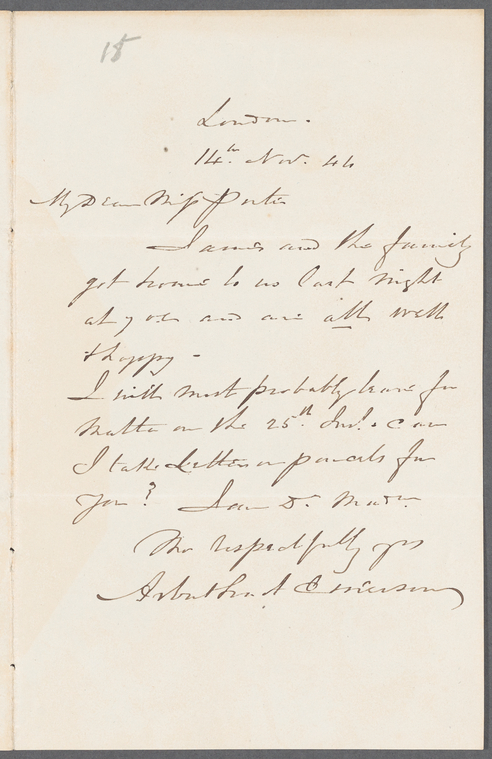 18
London.
14th. Nov. 44
My Dear Miss Porter
James and the family
got home to us last night
at 7 oc and are all well
& happy -
I will most probably leave for
Malta on the 25th Inst. & can
I take Letters or parcels for
you? I am Dr. Madm.
Mo respectfully yrs
Arbuthnot Emerson